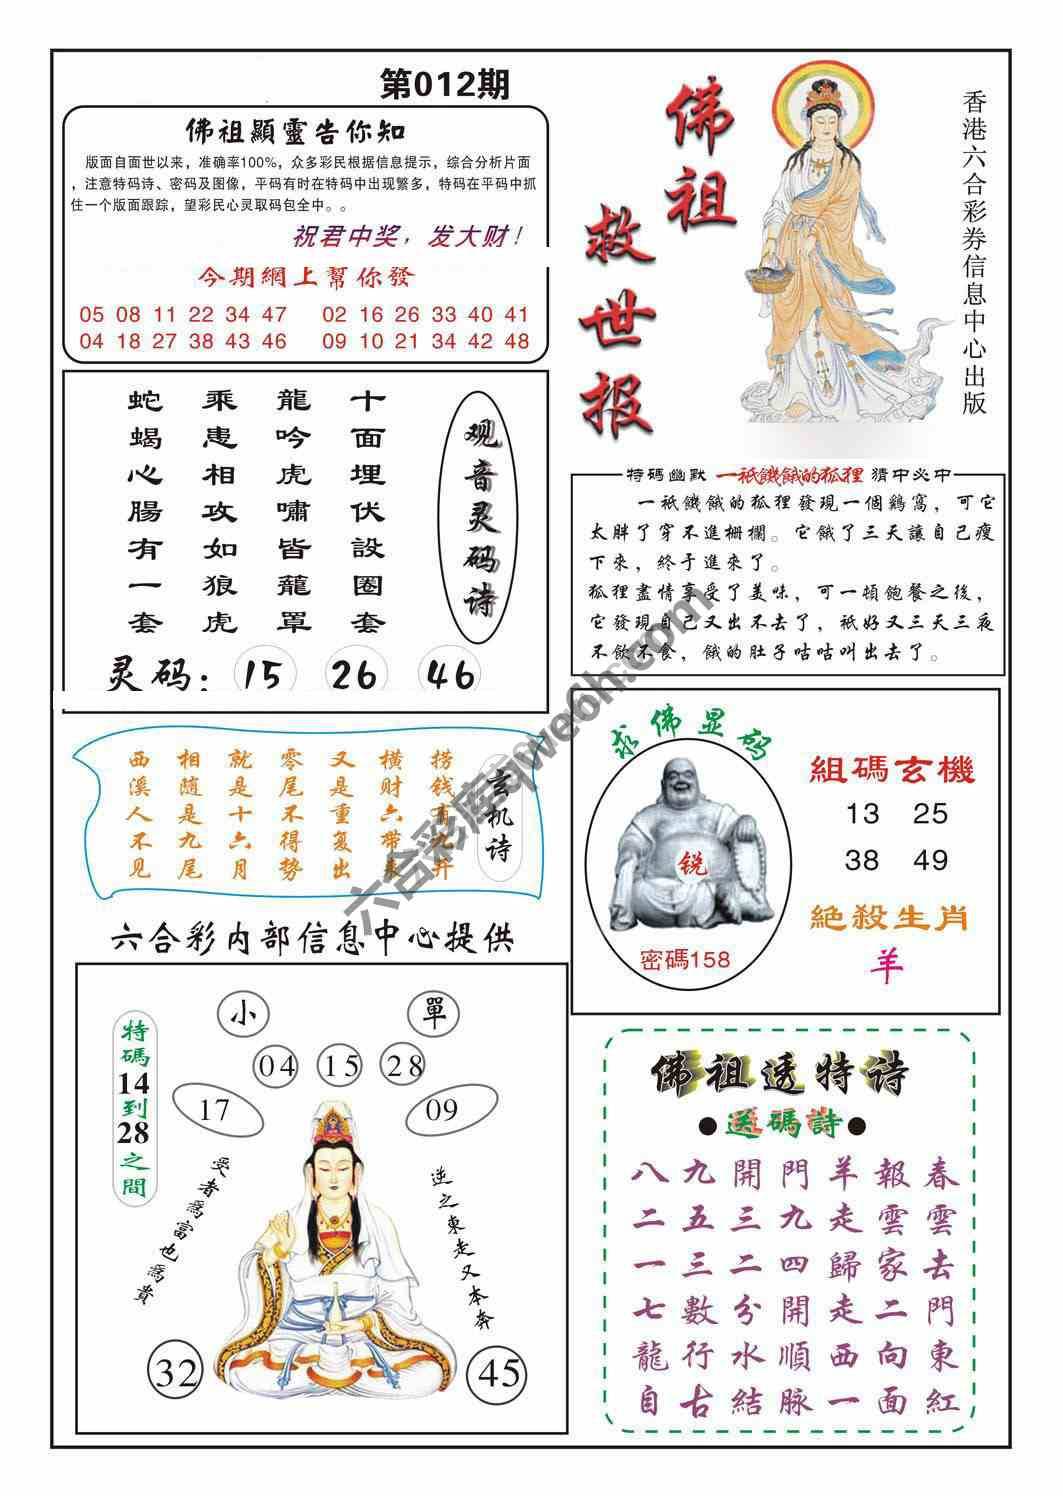 第012期
佛祖顯靈告你知
版面自面世以来，准确率100%，众多彩民根据信息提示，综合分析片面
，注意特码诗、密码及图像，平码有时在特码中出现繁多，特码在平码中抓
住一个版面跟踪，望彩民心灵取码包全中。。
祝君中奖，发大财！
今期網上幫你發
05 08 11 22 34 47 02 16 26 33 40 41
04 18 27 38 43 46 09 10 21 34 42 48
佛祖
救世报
香港六合彩券信息中心出版
观音灵码诗
十面埋伏設圈套
龍吟虎嘯皆籠罩
乘患相攻如狼虎
蛇蝎心腸有一套
灵码：15 26 46
特碼幽默 一祇饑餓的狐狸 猜中必中
一祇饑餓的狐狸發現一個鷄窩，可它
太胖了穿不進栅欄。它餓了三天讓自己瘦
下來，終于進來了。
狐狸盡情享受了美味，可一頓飽餐之後，
它發現自己又出不去了，祇好又三天三夜
不飲不食，餓的肚子咕咕叫出去了。
玄机诗
捞钱有九井
横财六带衰
又是重复出
零尾不得势
就是十六月
相随是九尾
西溪人不见
求佛显码
锐
密碼158
組碼玄機
13 25
38 49
絶殺生肖
羊
六合彩内部信息中心提供
特碼14到28之間
小 單
04 15 28
17 09
受者爲富也爲貴
逆之東走又本奔
32 45
佛祖透特诗
●送碼詩●
八九開門羊報春
二五三九走雲雲
一三二四歸家去
七數分開走二門
龍行水順西向東
自古結脉一面紅
六合彩库qwe6h.com